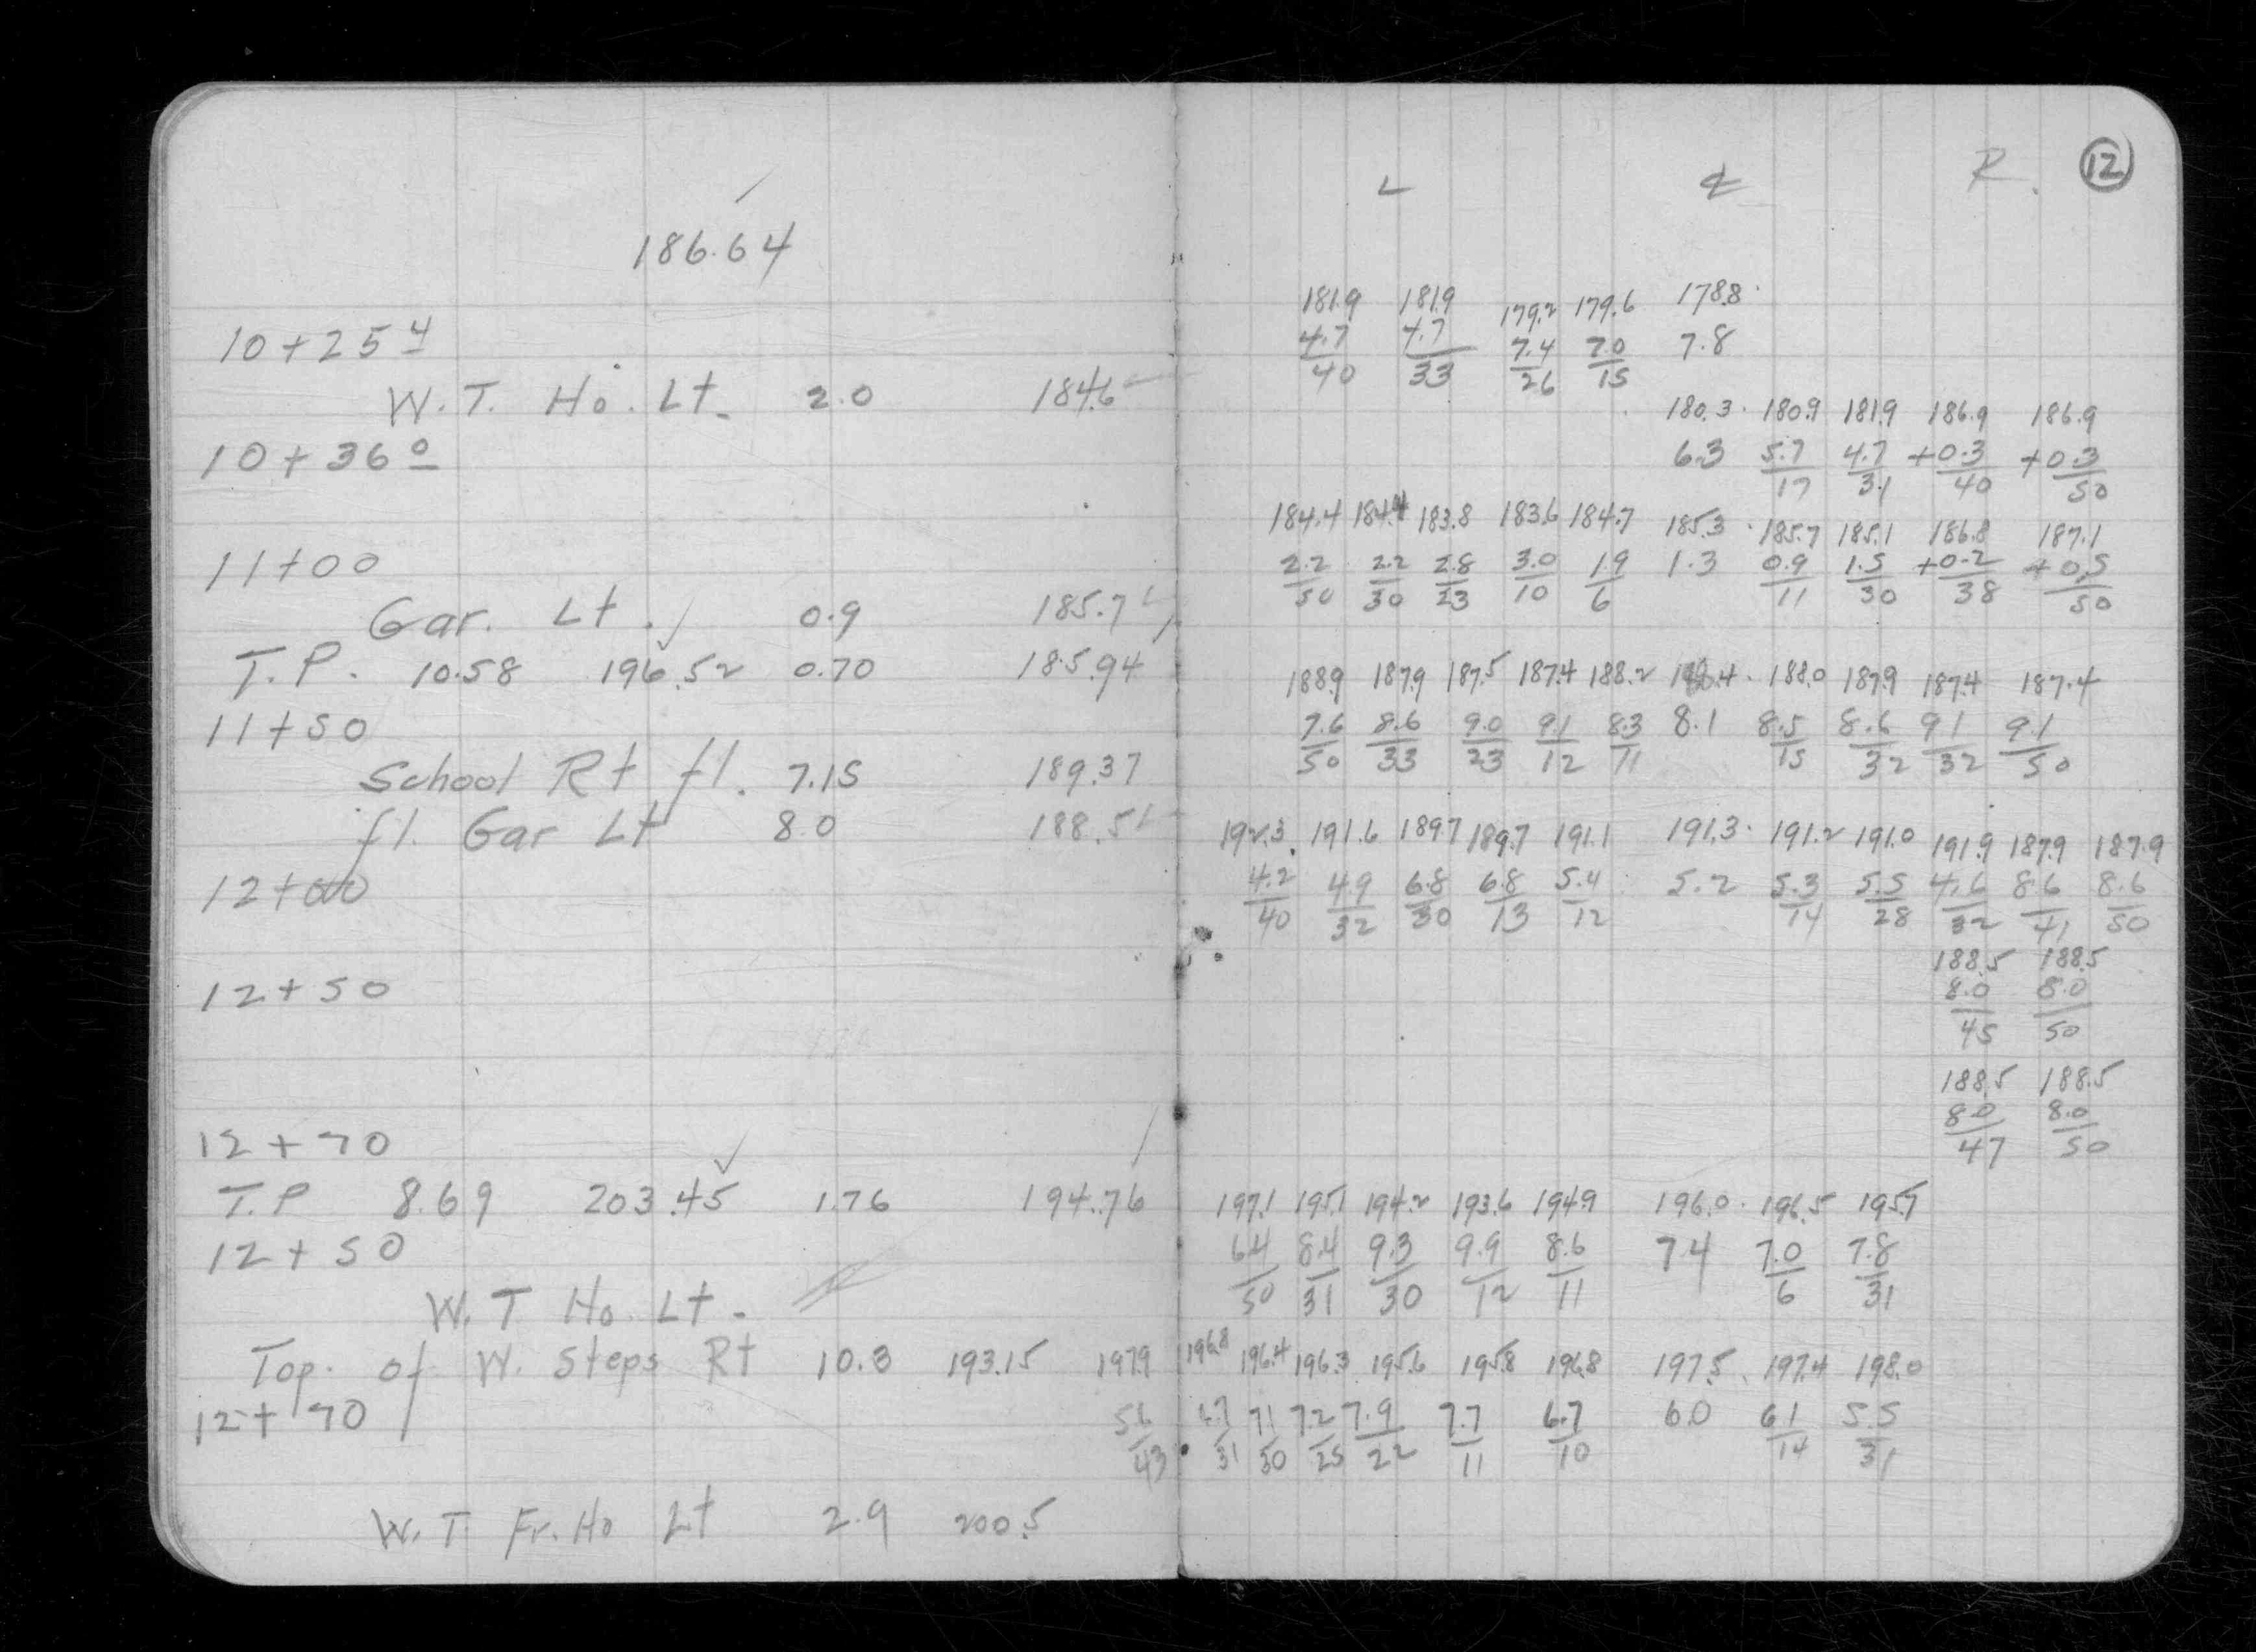 L ℄ R. 12
186.64
181.9 181.9 179.2 179.6 178.8
10+25 4 4.7 4.7 7.4 7.0 7.8
40 33 26 15
W.T. Ho. Lt. 2.0 184.6
180.3 180.9 181.9 186.9 186.9
10+36 0 6.3 5.7 4.7 +0.3 +0.3
17 31 40 50
184.4 184.4 183.8 183.6 184.7 185.3 185.7 185.1 186.8 187.1
11+00 2.2 2.2 2.8 3.0 1.9 1.3 0.9 1.5 +0.2 +0.5
50 30 23 10 6 11 30 38 50
Gar. Lt. 0.9 185.7
T.P. 10.58 196.52 0.70 185.94
188.9 187.9 187.5 187.4 188.2 188.4 188.0 187.9 187.4 187.4
11+50 7.6 8.6 9.0 9.1 8.3 8.1 8.5 8.6 9.1 9.1
50 33 23 12 11 15 32 32 50
School Rt fl. 7.15 189.37
fl. Gar Lt 8.0 188.5
192.3 191.6 189.7 189.7 191.1 191.3 191.2 191.0 191.9 187.9 187.9
12+00 4.2 4.9 6.8 6.8 5.4 5.2 5.3 5.5 4.6 8.6 8.6
40 32 30 13 12 14 28 32 41 50
188.5 188.5
12+50 8.0 8.0
45 50
188.5 188.5
12+70 8.0 8.0
47 50
T.P 8.69 203.45 1.76 194.76
197.1 195.1 194.2 193.6 194.9 196.0 196.5 195.7
12+50 6.4 8.4 9.3 9.9 8.6 7.4 7.0 7.8
50 31 30 12 11 6 31
W.T Ho. Lt.
Top. of W. Steps Rt 10.3 193.15
197.9 196.8 196.4 196.3 195.6 195.8 196.8 197.5 197.4 198.0
12+70 5.6 6.7 7.1 7.2 7.9 7.7 6.7 6.0 6.1 5.5
43 31 30 25 22 11 10 14 31
W.T. Fr. Ho Lt 2.9 200.5